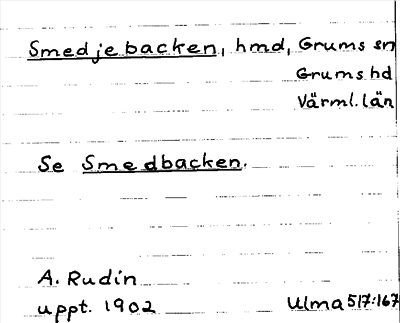 Smedjebacken, hmd, Grums sn
Grums hd
Värml. län
Se Smedbacken.
A. Rudin
uppt. 1902 Ulma 517:167